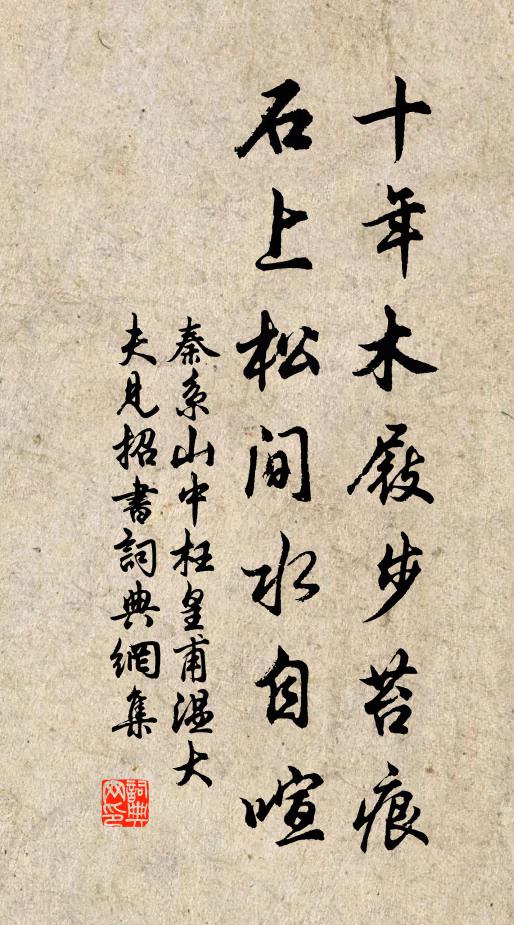 十年木屐步苔痕
石上松間水自喧
秦系山中枉皇甫温大
夫見招書詞典網集
詞典網印